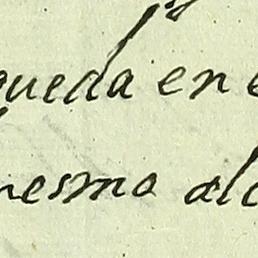 queda en e
mesmo alc